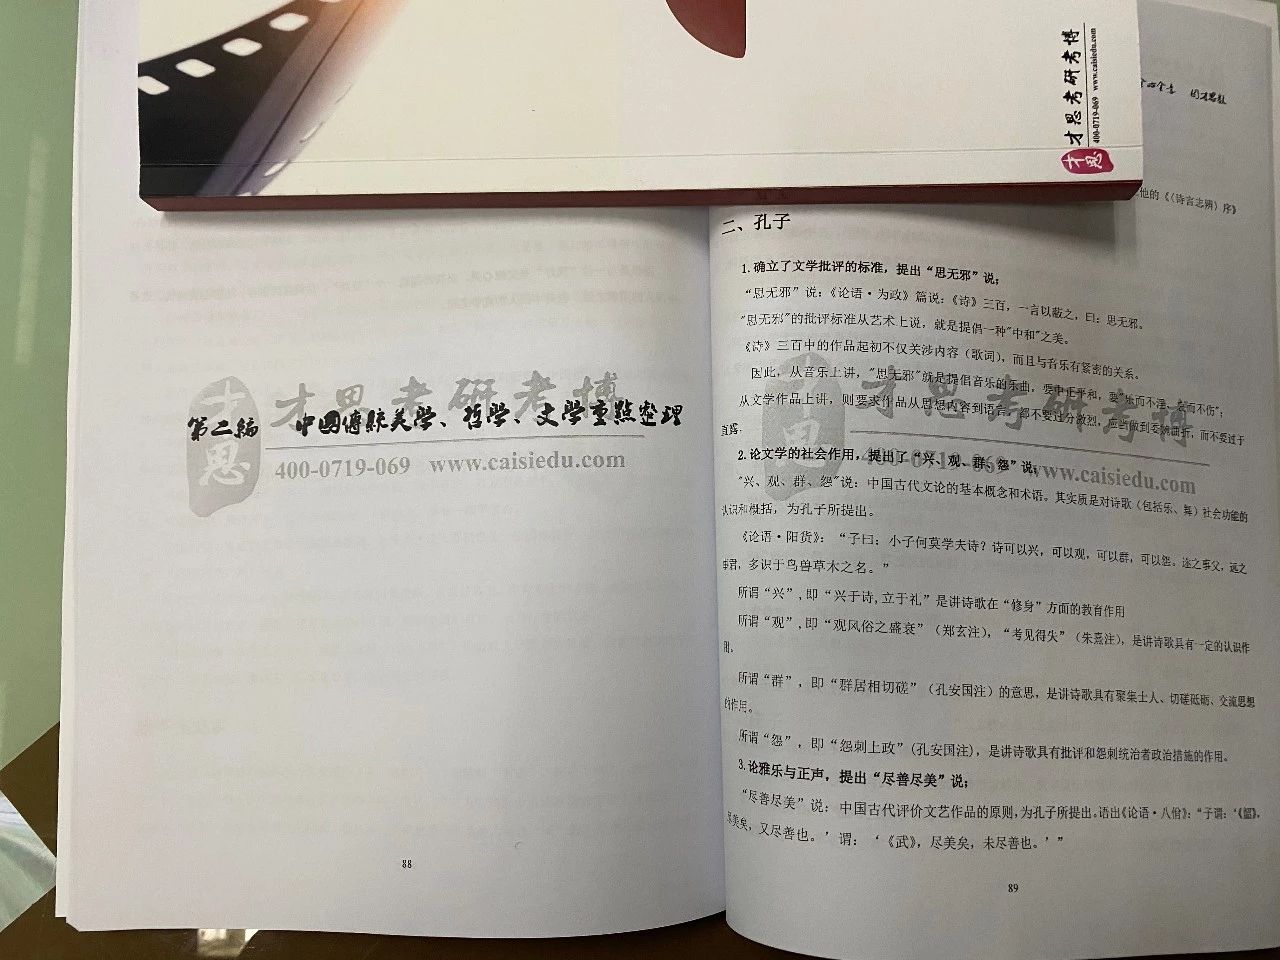 才思考研考博
400-0719-069 www.caisiedu.com
才思
他的《〈诗言志辨〉序》
才思考研考博
400-0719-069 www.caisiedu.com
才思
第二编 中國傳統美学、哲学、文学重點整理
88
二、孔子
1.确立了文学批评的标准，提出“思无邪”说；
“思无邪”说：《论语·为政》篇说：《诗》三百，一言以蔽之，曰：思无邪。
"思无邪"的批评标准从艺术上说，就是提倡一种"中和"之美。
《诗》三百中的作品起初不仅关涉内容（歌词），而且与音乐有紧密的关系。
因此，从音乐上讲，"思无邪"就是提倡音乐的乐曲，要中正平和，要"乐而不淫，哀而不伤"；
从文学作品上讲，则要求作品从思想内容到语言，都不要过分激烈，应当做到委婉曲折，而不要过于
直露。
2.论文学的社会作用，提出了“兴、观、群、怨”说；
"兴、观、群、怨"说：中国古代文论的基本概念和术语。其实质是对诗歌（包括乐、舞）社会功能的
认识和概括，为孔子所提出。
《论语·阳货》：“子曰：小子何莫学夫诗？诗可以兴，可以观，可以群，可以怨。迩之事父，远之
事君，多识于鸟兽草木之名。”
所谓“兴”,即“兴于诗,立于礼”是讲诗歌在“修身”方面的教育作用
所谓“观”,即“观风俗之盛衰”（郑玄注），“考见得失”（朱熹注），是讲诗歌具有一定的认识作
用。
所谓“群”，即“群居相切磋”（孔安国注）的意思，是讲诗歌具有聚集士人、切磋砥砺、交流思想
的作用。
所谓“怨”，即“怨刺上政”(孔安国注)，是讲诗歌具有批评和怨刺统治者政治措施的作用。
3.论雅乐与正声，提出“尽善尽美”说；
“尽善尽美”说：中国古代评价文艺作品的原则,为孔子所提出。语出《论语·八佾》：“子谓：‘《韶》,
尽美矣，又尽善也。’谓：‘《武》，尽美矣，未尽善也。’”
才思考研考博
400-0719-069 www.caisiedu.com
才思
89